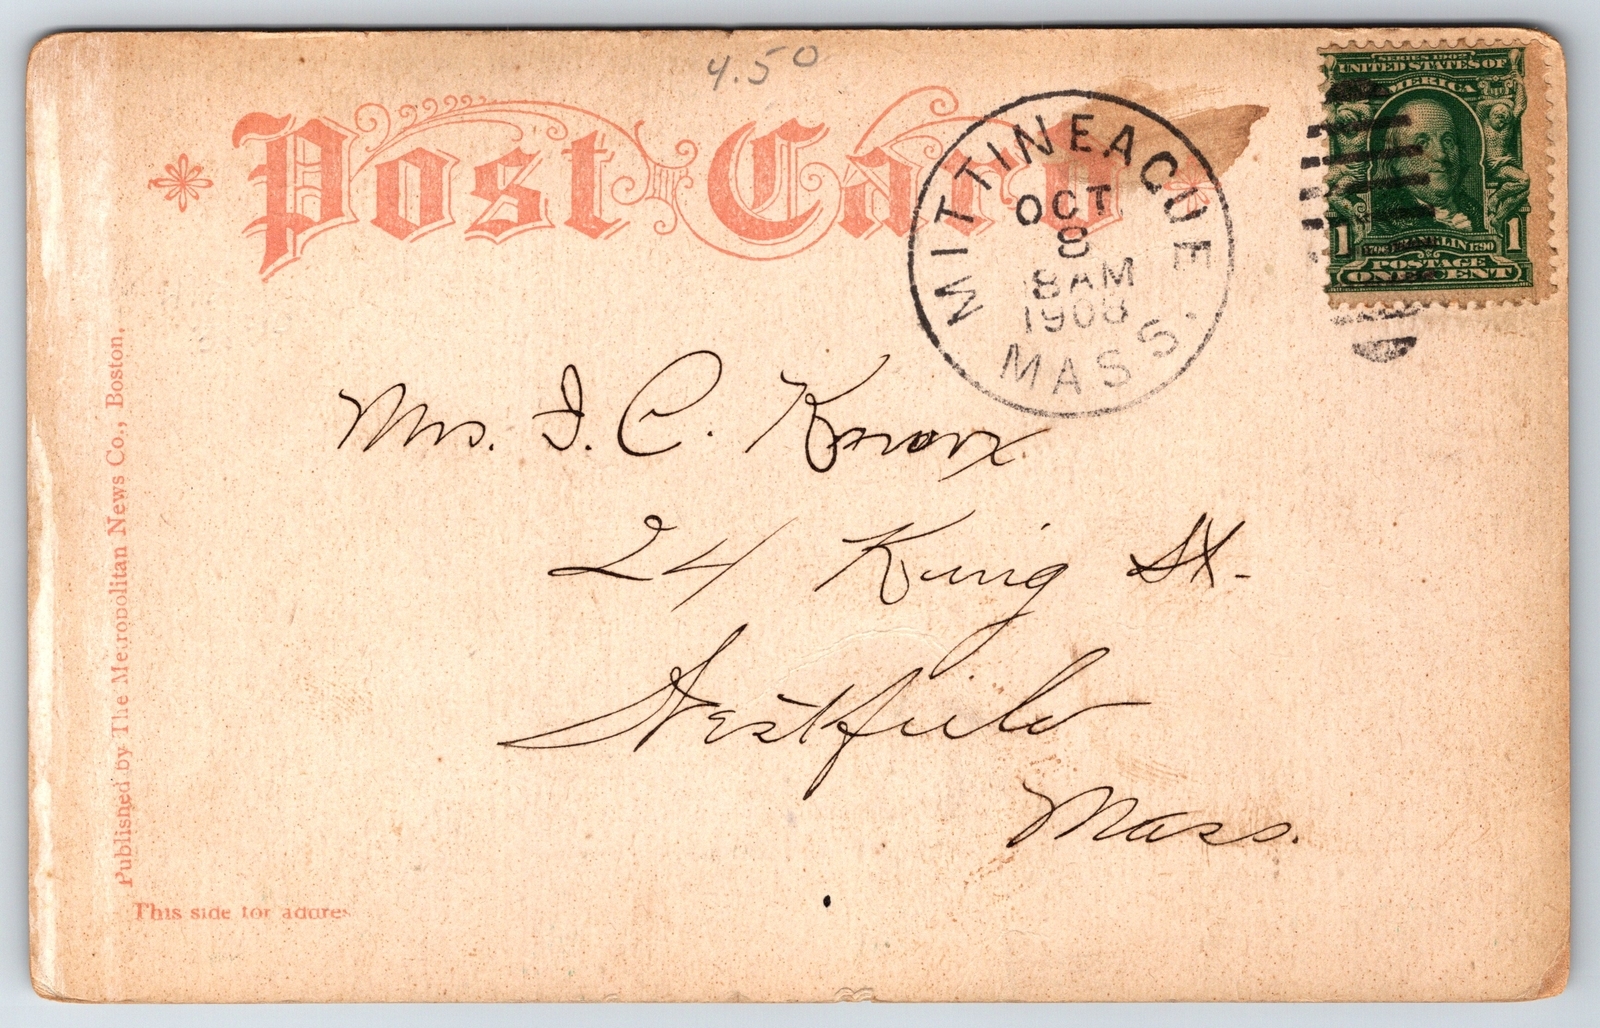 4.50
Post Card
MITTINEAGUE
OCT
8
8 AM
1908
MASS.
SERIES 1902
UNITED STATES OF
AMERICA
1706 FRANKLIN 1790
1 1
POSTAGE
ONE CENT
Mrs. I. C. Knox
24 King St.
Westfield
Mass.
Published by The Metropolitan News Co., Boston.
This side for addres